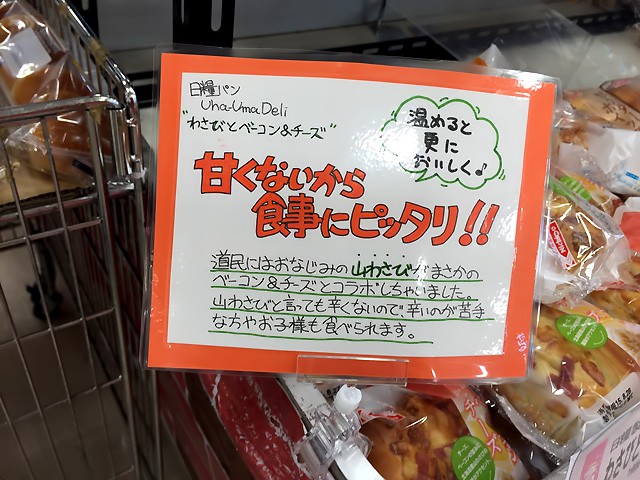 日糧パン
Una-Uma Deli
"わさびとベーコン&チーズ"
温めると
更に
おいしく♪
甘くないから
食事にピッタリ!!
道民にはおなじみの山わさびがまさかの
ベーコン&チーズとコラボしちゃいました。
山わさびと言っても辛くないので、辛いのが苦手
な方やお子様も食べられます。